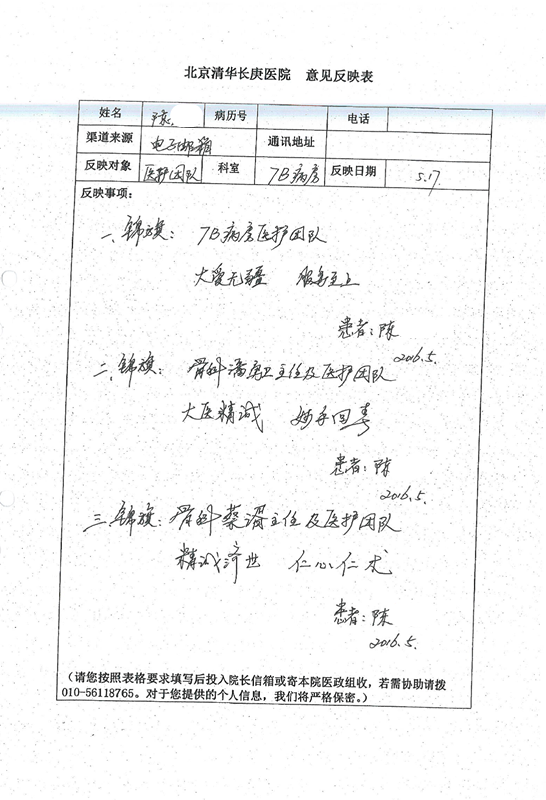 北京清华长庚医院 意见反映表
姓名 陈 病历号 电话
渠道来源 电子邮箱 通讯地址
反映对象 医护团队 科室 7B病房 反映日期 5.17
反映事项:
一、锦旗: 7B病房医护团队
大爱无疆 服务至上
患者:陈
2016.5.
二、锦旗: 骨科潘勇卫主任及医护团队
大医精诚 妙手回春
患者:陈
2016.5.
三、锦旗: 骨科蔡谞主任及医护团队
精诚济世 仁心仁术
患者:陈
2016.5.
(请您按照表格要求填写后投入院长信箱或寄本院医政组收,若需协助请拨
010-56118765。对于您提供的个人信息,我们将严格保密。)